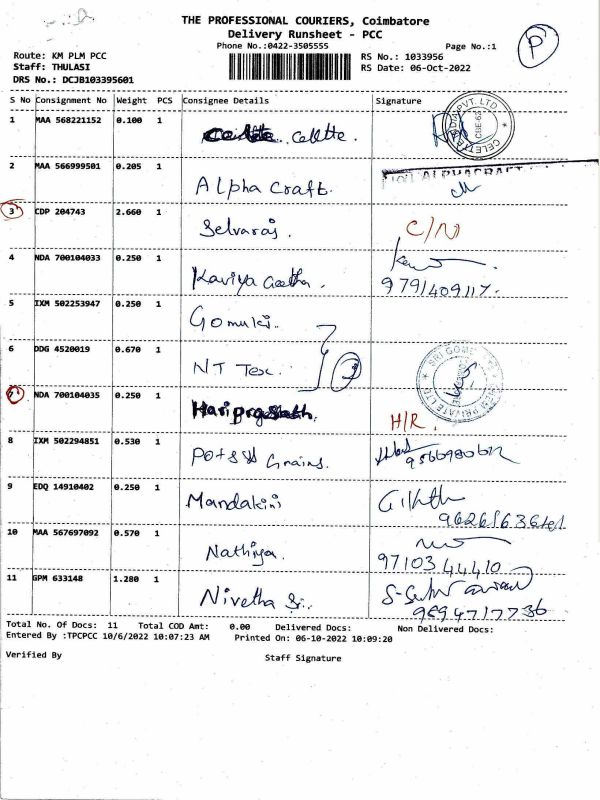 THE PROFESSIONAL COURIERS, Coimbatore
Delivery Runsheet - PCC
Phone No.:0422-3505555
Page No.:1
P
Route: KM PLM PCC
Staff: THULASI
DRS No.: DCJB103395601
RS No.: 1033956
RS Date: 06-Oct-2022
S No Consignment No Weight PCS Consignee Details Signature
1 MAA 568221152 0.100 1 Celette.
2 MAA 566999501 0.205 1 Alpha Craft.
3 CDP 204743 2.660 1 Selvaraj. C/N
4 NDA 700104033 0.250 1 Kaviya Geetha.
9791409117.
5 IXM 502253947 0.250 1 Gomuki.
6 DDG 4520019 0.670 1 NT Tex.
7 NDA 700104035 0.250 1 Hariprasath. H/R.
8 IXM 502294851 0.530 1 Grains.
9 EDQ 14910402 0.250 1 Mandakini
10 MAA 567697092 0.570 1 Nathiya.
97103 44410
11 GPM 633148 1.280 1 Nivetha Sri.
9694717736
Total No. Of Docs: 11 Total COD Amt: 0.00 Delivered Docs: Non Delivered Docs:
Entered By :TPCPCC 10/6/2022 10:07:23 AM Printed On: 06-10-2022 10:09:20
Verified By Staff Signature